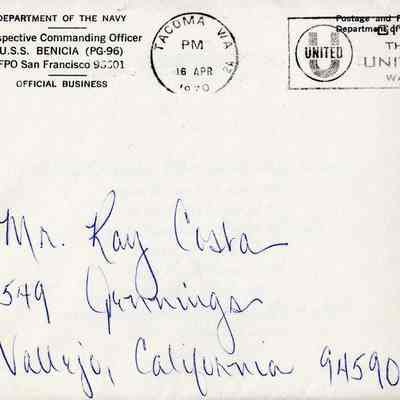 DEPARTMENT OF THE NAVY
spective Commanding Officer
U.S.S. BENICIA (PG-96)
FPO San Francisco 96601
OFFICIAL BUSINESS
TACOMA WA
PM
16 APR
1970
UNITED
TH
UNIT
WA
Postage and F
Department of
Mr. Ray Costa
549 Jennings
Vallejo, California 94590